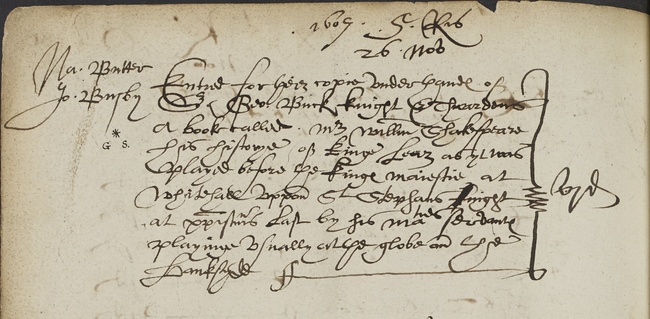 1607. 5. Regis
26. Nov
Na. Butter
Jo. Busby
Entred for their copie under thande of
Sr Geo. Buck knight & Thwardens
A booke called. Mr William Shakespeare
his historye of Kinge Lear as yt was
played before the kinges maiestie at
Whitehall uppon St Stephans night
at xpistmas Last by his maties servantes
playinge usually at the globe on the
Banksyde
vjd
* G S.